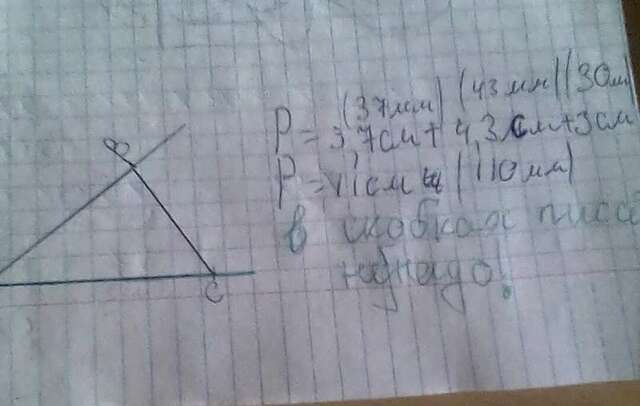 B
C
(37мм) (43 мм) (30м)
P = 3,7см + 4,3 см + 3см
P = 11см (110мм)
в скобках писа
ненадо!